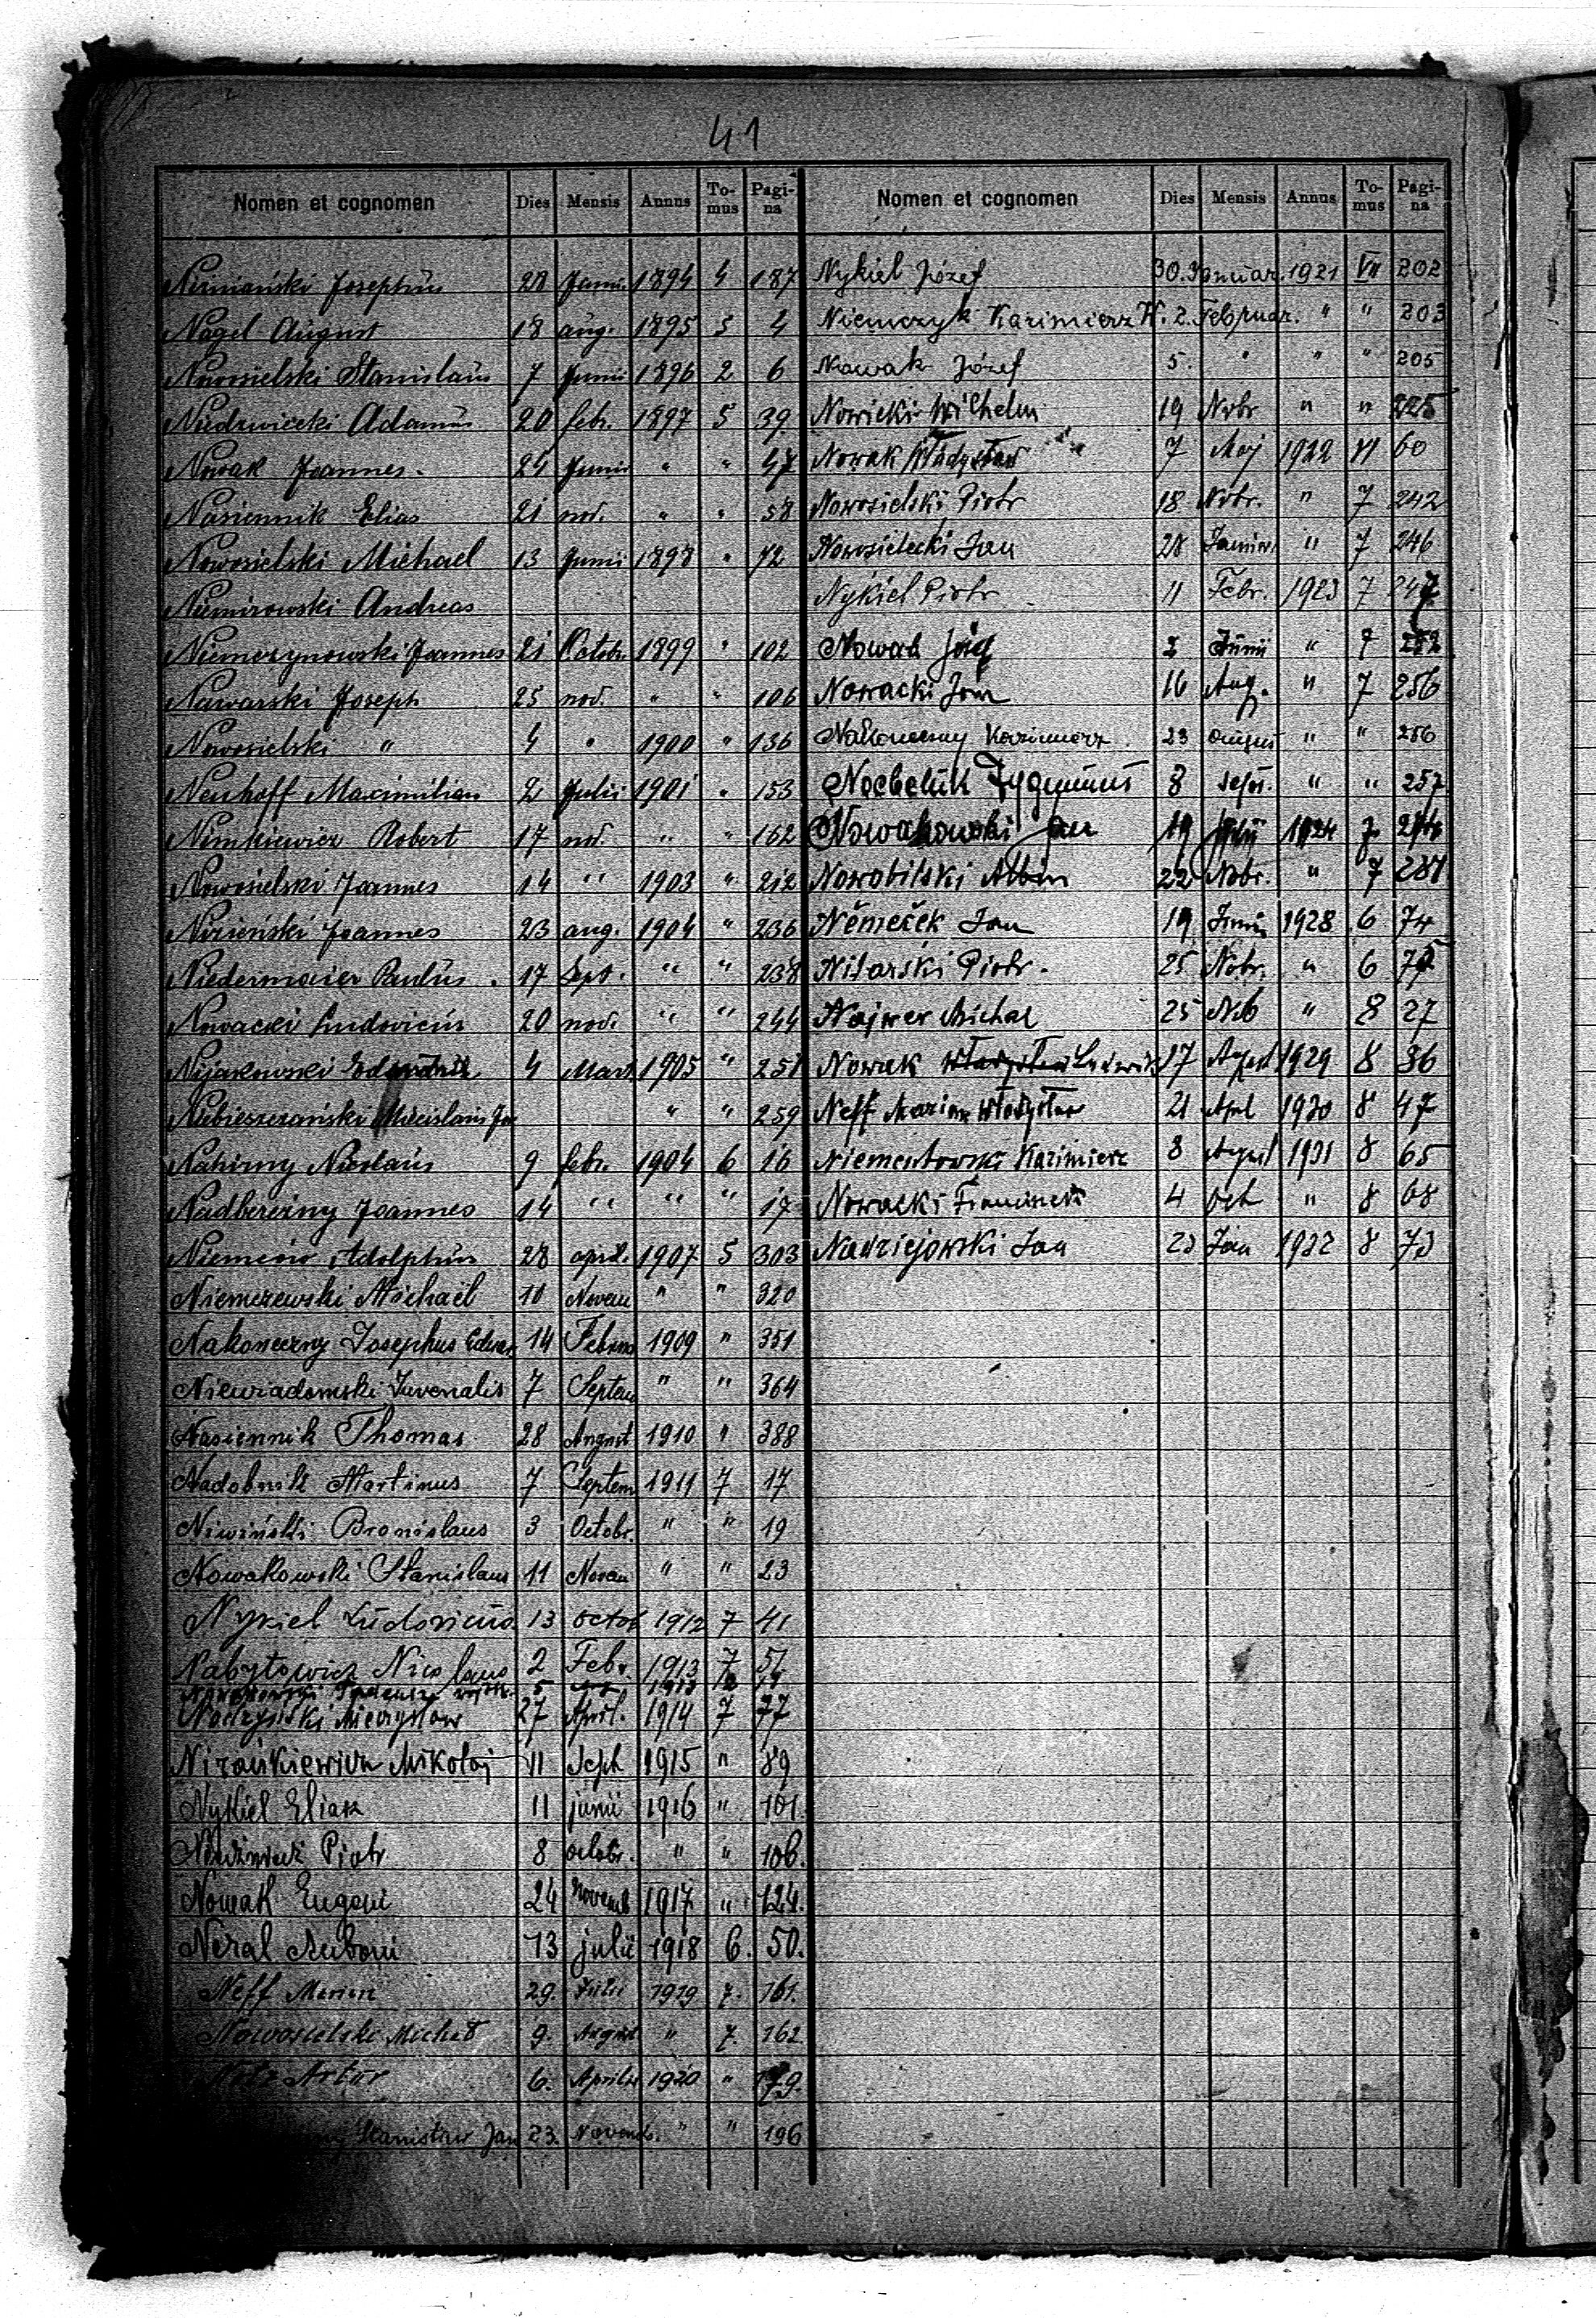 41
Nomen et cognomen Dies Mensis Annus To-mus Pagi-na
Josephus 28 Junii 1894 4 187
Nagel August 18 aug. 1895 5 4
Nowosielski Stanislaus 7 Junii 1896 2 6
Niedzwiecki Adamus 20 febr. 1897 5 39
Nowak Joannes. 24 Junii " " 47
Nasiennik Elias 21 nov. " " 58
Nowosielski Michael 13 Junii 1898 " 72
Niemirowski Andreas
Niemczynowski Joannes 21 Octobr. 1899 " 102
Nawarski Joseph 25 nov. " " 106
Nowosielski " 4 " 1900 " 136
Neuhoff Maximilian 2 Julii 1901 " 153
Nimkiewicz Robert 17 nov. " " 162
Nowosielski Joannes 14 " 1903 " 212
Nizieński Joannes 23 aug. 1904 " 236
Niedermaier Paulus. 17 Sept. " " 238
Nowacki Ludovicus 20 nov. " " 244
Nyjakowski 4 Mart. 1905 " 251
Niebieszczański Miecislaus " " 259
Nahirny Nicolaus 9 febr. 1904 6 16
Nadberezny Joannes 14 " " " 17
Niemciw Adolphus 28 april. 1907 5 303
Niemczewski Michaël 10 Novem " " 320
Nakoneczny Josephus 14 Februa 1909 " 351
Niewiadomski Juvenalis 7 Septem " " 364
Nasiennik Thomas 28 August 1910 " 388
Nadobnik Martinus 7 Septem 1911 7 17
Niwiński Bronislaus 3 Octobr. " " 19
Nowakowski Stanislaus 11 Novem " " 23
Nykiel Ludovicus 13 octob 1912 7 41
Nabytowicz Nicolaus 2 Febr. 1913 7 51
5 1913
Mieczysław 27 April. 1914 7 77
Mikołaj 11 Seph 1915 " 89
Nykiel Eliasz 11 junii 1916 " 101.
Piotr 8 octobr. " " 106.
Nowak Eugeni 24 Novemb 1917 " 124.
Neral 13 julii 1918 6. 50.
Neff Marian 29. Julii 1919 7. 161.
Nowosielski Michał 9. August " 7. 162.
Artur 6. Aprilis 1920 " 179.
Stanisław Jan 23. Novemb. " " 196
Nomen et cognomen Dies Mensis Annus To-mus Pagi-na
Nykiel Józef 30. Januar. 1921 VII 202
Niemczyk Kazimierz W. 2. Februar. " " 203
Nowak Józef 5. " " " 205
Nowicki Wilhelm 19 Nobr " " 225
Nowak Władysław 7 Maj 1922 VI 60
Nowosielski Piotr 18 Nobr. " 7 242
Nowosielecki Jan 28 " 7 246
Nykiel Piotr 11 Febr. 1923 7 247
Nowak Józef 2 Junii " 7 252
Nowacki Jan 16 Aug. " 7 256
Nakoneczny Kazimierz. 23 " " 256
8 " " 257
Nowakowski Jan 19 1924 7
Nowobilski Albin 22 Nobr. " 7 281
Němeček Jan 19 Junii 1928 6 74
Nitarski Piotr. 25 Nobr. " 6 75
Najwer Michał 25 " 8 27
Nowak 17 August 1929 8 36
Neff Marian Władysław 21 Apl 1930 8 47
Niementowski Kazimierz 8 August 1931 8 65
Nowacki Franciszek 4 Oct " 8 68
Nadziejowski Jan 23 Jan 1932 8 73